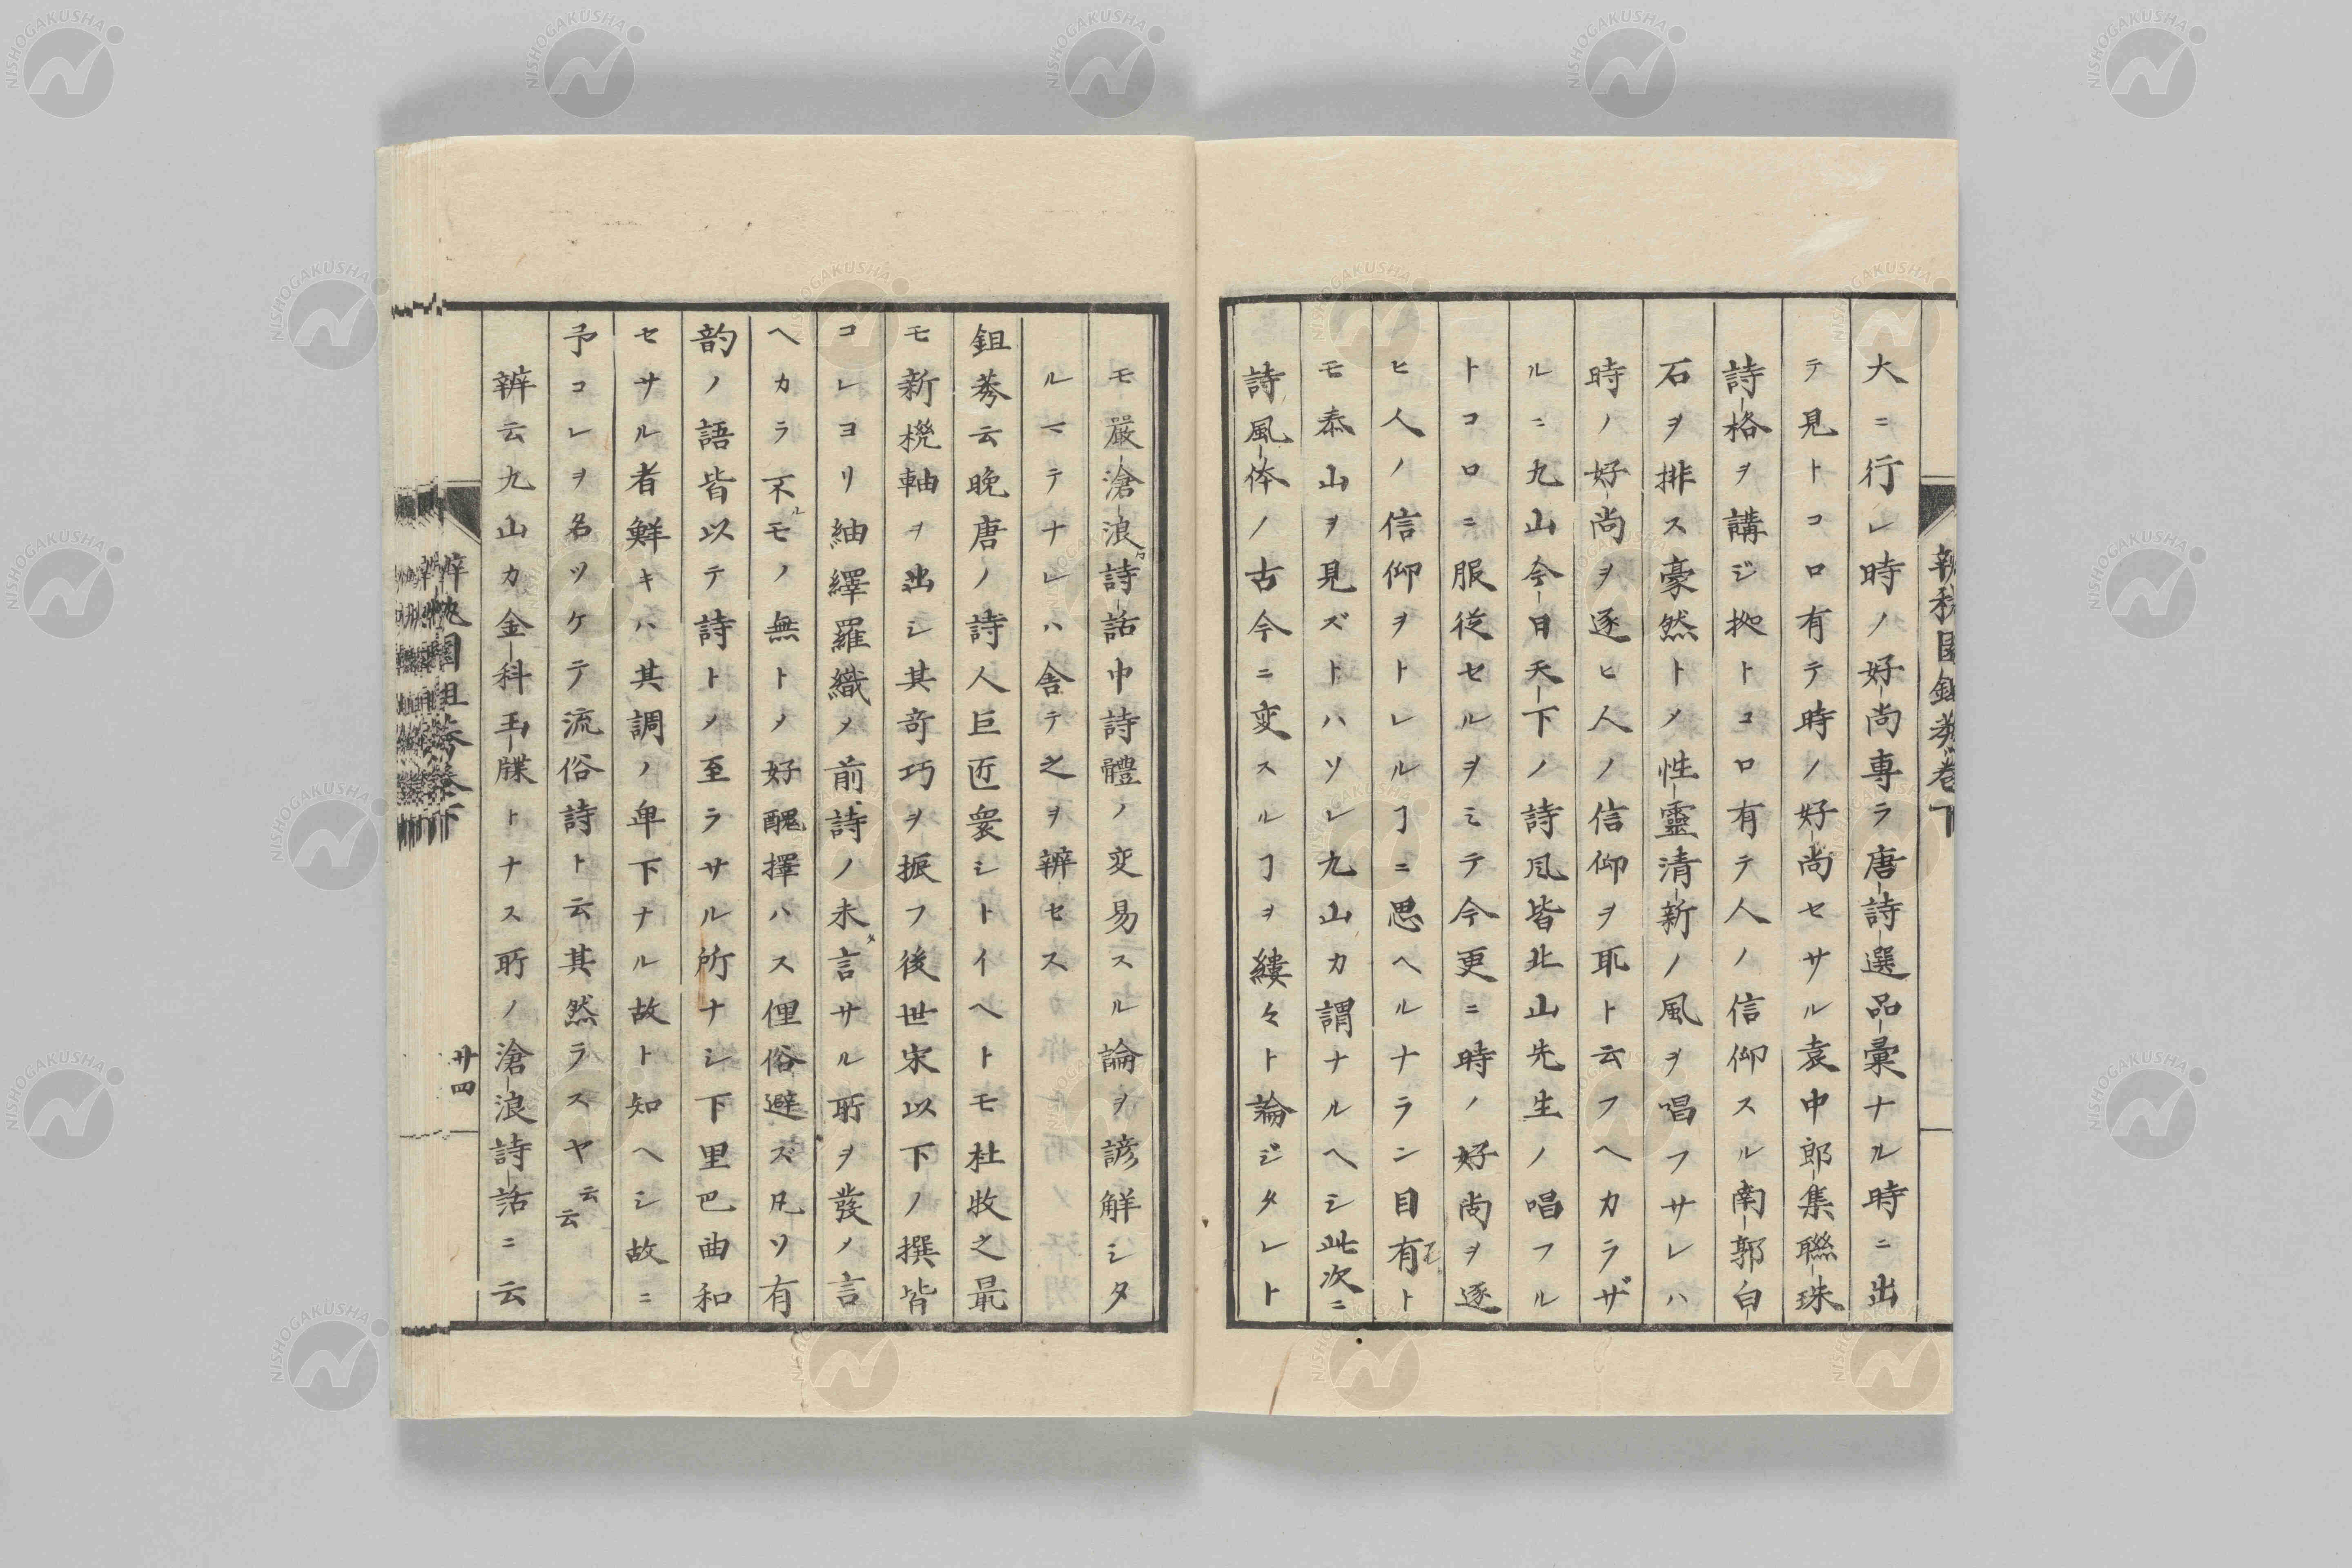 大ニ行レ時ノ好尚專ラ唐詩選品彙ナル時ニ出
テ見トコロ有テ時ノ好尚セサル袁中郎集聯珠
詩格ヲ講ジ拠トコロ有テ人ノ信仰スル南郭白
石ヲ排ス豪然トノ性靈清新ノ風ヲ唱フサレハ
時ノ好尚ヲ逐ヒ人ノ信仰ヲ耴ト云フヘカラザ
ルニ九山今日天下ノ詩凮皆北山先生ノ唱フル
トコロニ服從セルヲミテ今更ニ時ノ好尚ヲ逐
ヒ人ノ信仰ヲトレルヿニ思ヘルナラン目有ト
モ泰山ヲ見ズトハソレ九山カ謂ナルヘシ此次ニ
詩風体ノ古今ニ変スルヿヲ縷々ト論ジタレト
モ嚴滄浪詩話中詩體ノ変易スル論ヲ諺解シタ
ルニテナレハ舎テ之ヲ辨セス
鉏莠云晩唐ノ詩人巨匠衆シトイヘトモ杜牧之最
モ新機軸ヲ出シ其奇巧ヲ振フ後世宋以下ノ撰皆
コレヨリ紬繹羅織メノ前詩ノ未言サル所ヲ發ノ言
ヘカラ不ルモノ無トノ好醜擇ハス俚俗避ズ凡ソ有
韵ノ語皆以テ詩トノ至ラサル所ナシ下里巴曲和
セサル者鮮キハ其調ノ卑下ナル故ト知ヘシ故ニ
予コレヲ名ツケテ流俗詩ト云其然ラスヤ云云
辨云九山カ金科玉牒トナス所ノ滄浪詩話ニ云
廿四